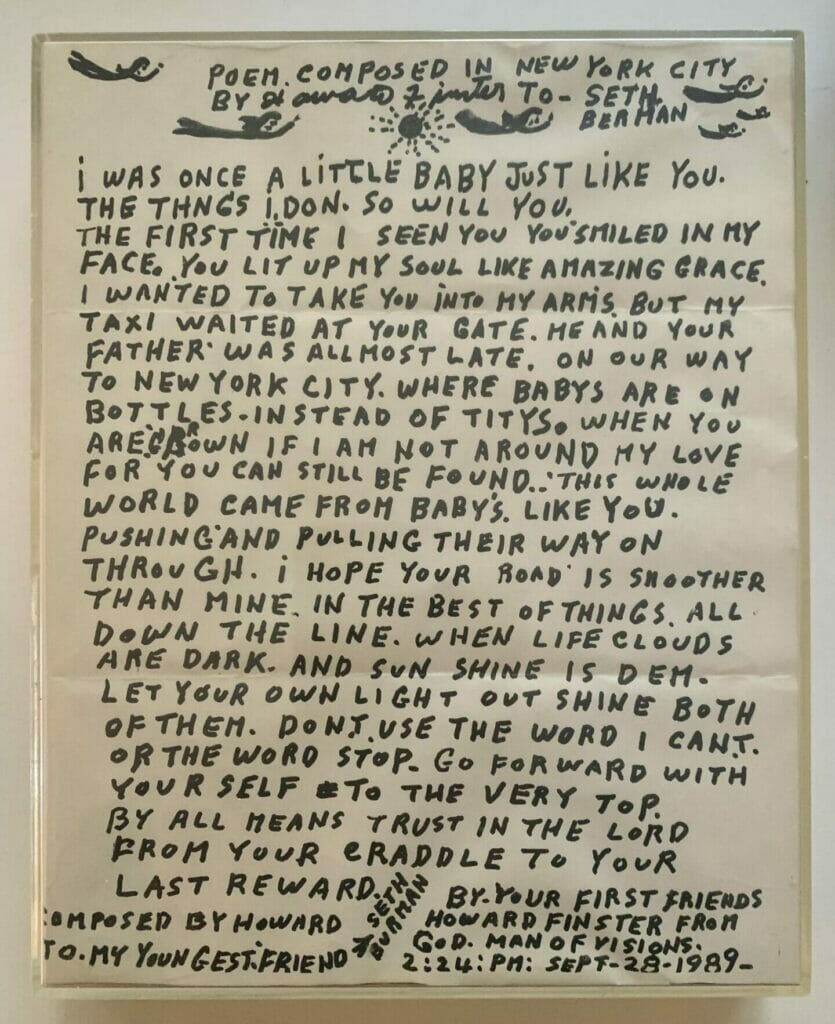 POEM. COMPOSED IN NEW YORK CITY
BY Howard Finster TO- SETH
BERMAN
i WAS ONCE A LITTLE BABY JUST LIKE YOU.
THE THNGS i, DON. SO WILL YOU.
THE FIRST TIME I SEEN YOU YOU SMILED IN MY
FACE. YOU LIT UP MY SOUL LIKE AMAZING GRACE.
I WANTED TO TAKE YOU INTO MY ARMS. BUT MY
TAXI WAITED AT YOUR GATE. ME AND YOUR
FATHER WAS ALLMOST LATE. ON OUR WAY
TO NEW YORK CITY. WHERE BABYS ARE ON
BOTTLES-INSTEAD OF TITYS. WHEN YOU
ARE GROWN IF I AM NOT AROUND MY LOVE
FOR YOU CAN STILL BE FOUND.. THIS WHOLE
WORLD CAME FROM BABY'S. LIKE YOU.
PUSHING AND PULLING THEIR WAY ON
THROUGH. i HOPE YOUR ROAD IS SMOOTHER
THAN MINE. IN THE BEST OF THINGS. ALL
DOWN THE LINE. WHEN LIFE CLOUDS
ARE DARK. AND SUN SHINE IS DEM.
LET YOUR OWN LIGHT OUT SHINE BOTH
OF THEM. DONT. USE THE WORD I CANT.
OR THE WORD STOP. GO FORWARD WITH
YOUR SELF TO THE VERY TOP.
BY ALL MEANS TRUST IN THE LORD
FROM YOUR CRADDLE TO YOUR
LAST REWARD.
COMPOSED BY HOWARD
TO. MY YOUNGEST. FRIEND
SETH
BY. YOUR FIRST FRIENDS
HOWARD FINSTER FROM
GOD. MAN OF VISIONS.
2:24: PM: SEPT-28-1989-